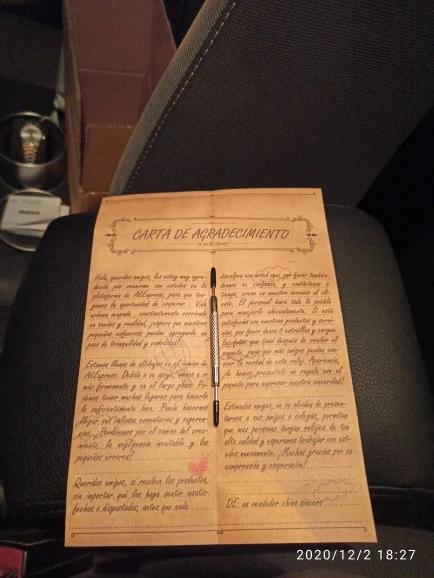 CARTA DE AGRADECIMIENTO
watch shop
Hola, queridos amigos, les estoy muy agra-
decido por reunirme con ustedes en la
plataforma de AliExpress, para que ten-
gamos la oportunidad de cooperar. Vida
urbana ocupada, constantemente corriendo
en sueños y realidad, ¡espero que nuestros
pequeños esfuerzos puedan agregarle un
poco de tranquilidad y comodidad!
Estamos llenos de altibajos en el camino de
AliExpress. Debido a su apoyo,
más firmemente y en el largo plazo. Po-
demos tener muchos lugares para hacerlo
lo suficientemente bien. Puede hacernos
llegar sus valiosos comentarios y sugeren-
cias. ¡Perdónenos por el camino del creci-
miento, la negligencia inevitable y los
pequeños errores!
Queridos amigos, si reciben los productos,
sin importar qué los haga sentir insatis-
fechos o disgustados, antes que nada
disculpen con usted aquí, por favor también
denos su confianza, y contáctenos a
tiempo, creen en nuestro servicio al cli-
ente. El personal hará todo lo posible
para manejarlo adecuadamente. Si está
satisfecho con nuestros productos y servi-
cios, por favor denos 5 estrellas y cargue
las fotos que tomó después de recibir el
paquete, para que más amigos puedan con-
ocer la verdad de este reloj. Apariencia,
¡le hemos presentado un regalo con el
paquete para expresar nuestra sinceridad!
Estimados amigos, no se olviden de presen-
tarnos a sus amigos o colegas, permitan
que más personas tengan relojes de tan
alta calidad y esperamos trabajar con uste-
des nuevamente. ¡Muchas gracias por su
comprensión y cooperación!
DE: un vendedor chino sincero
2020/12/2 18:27